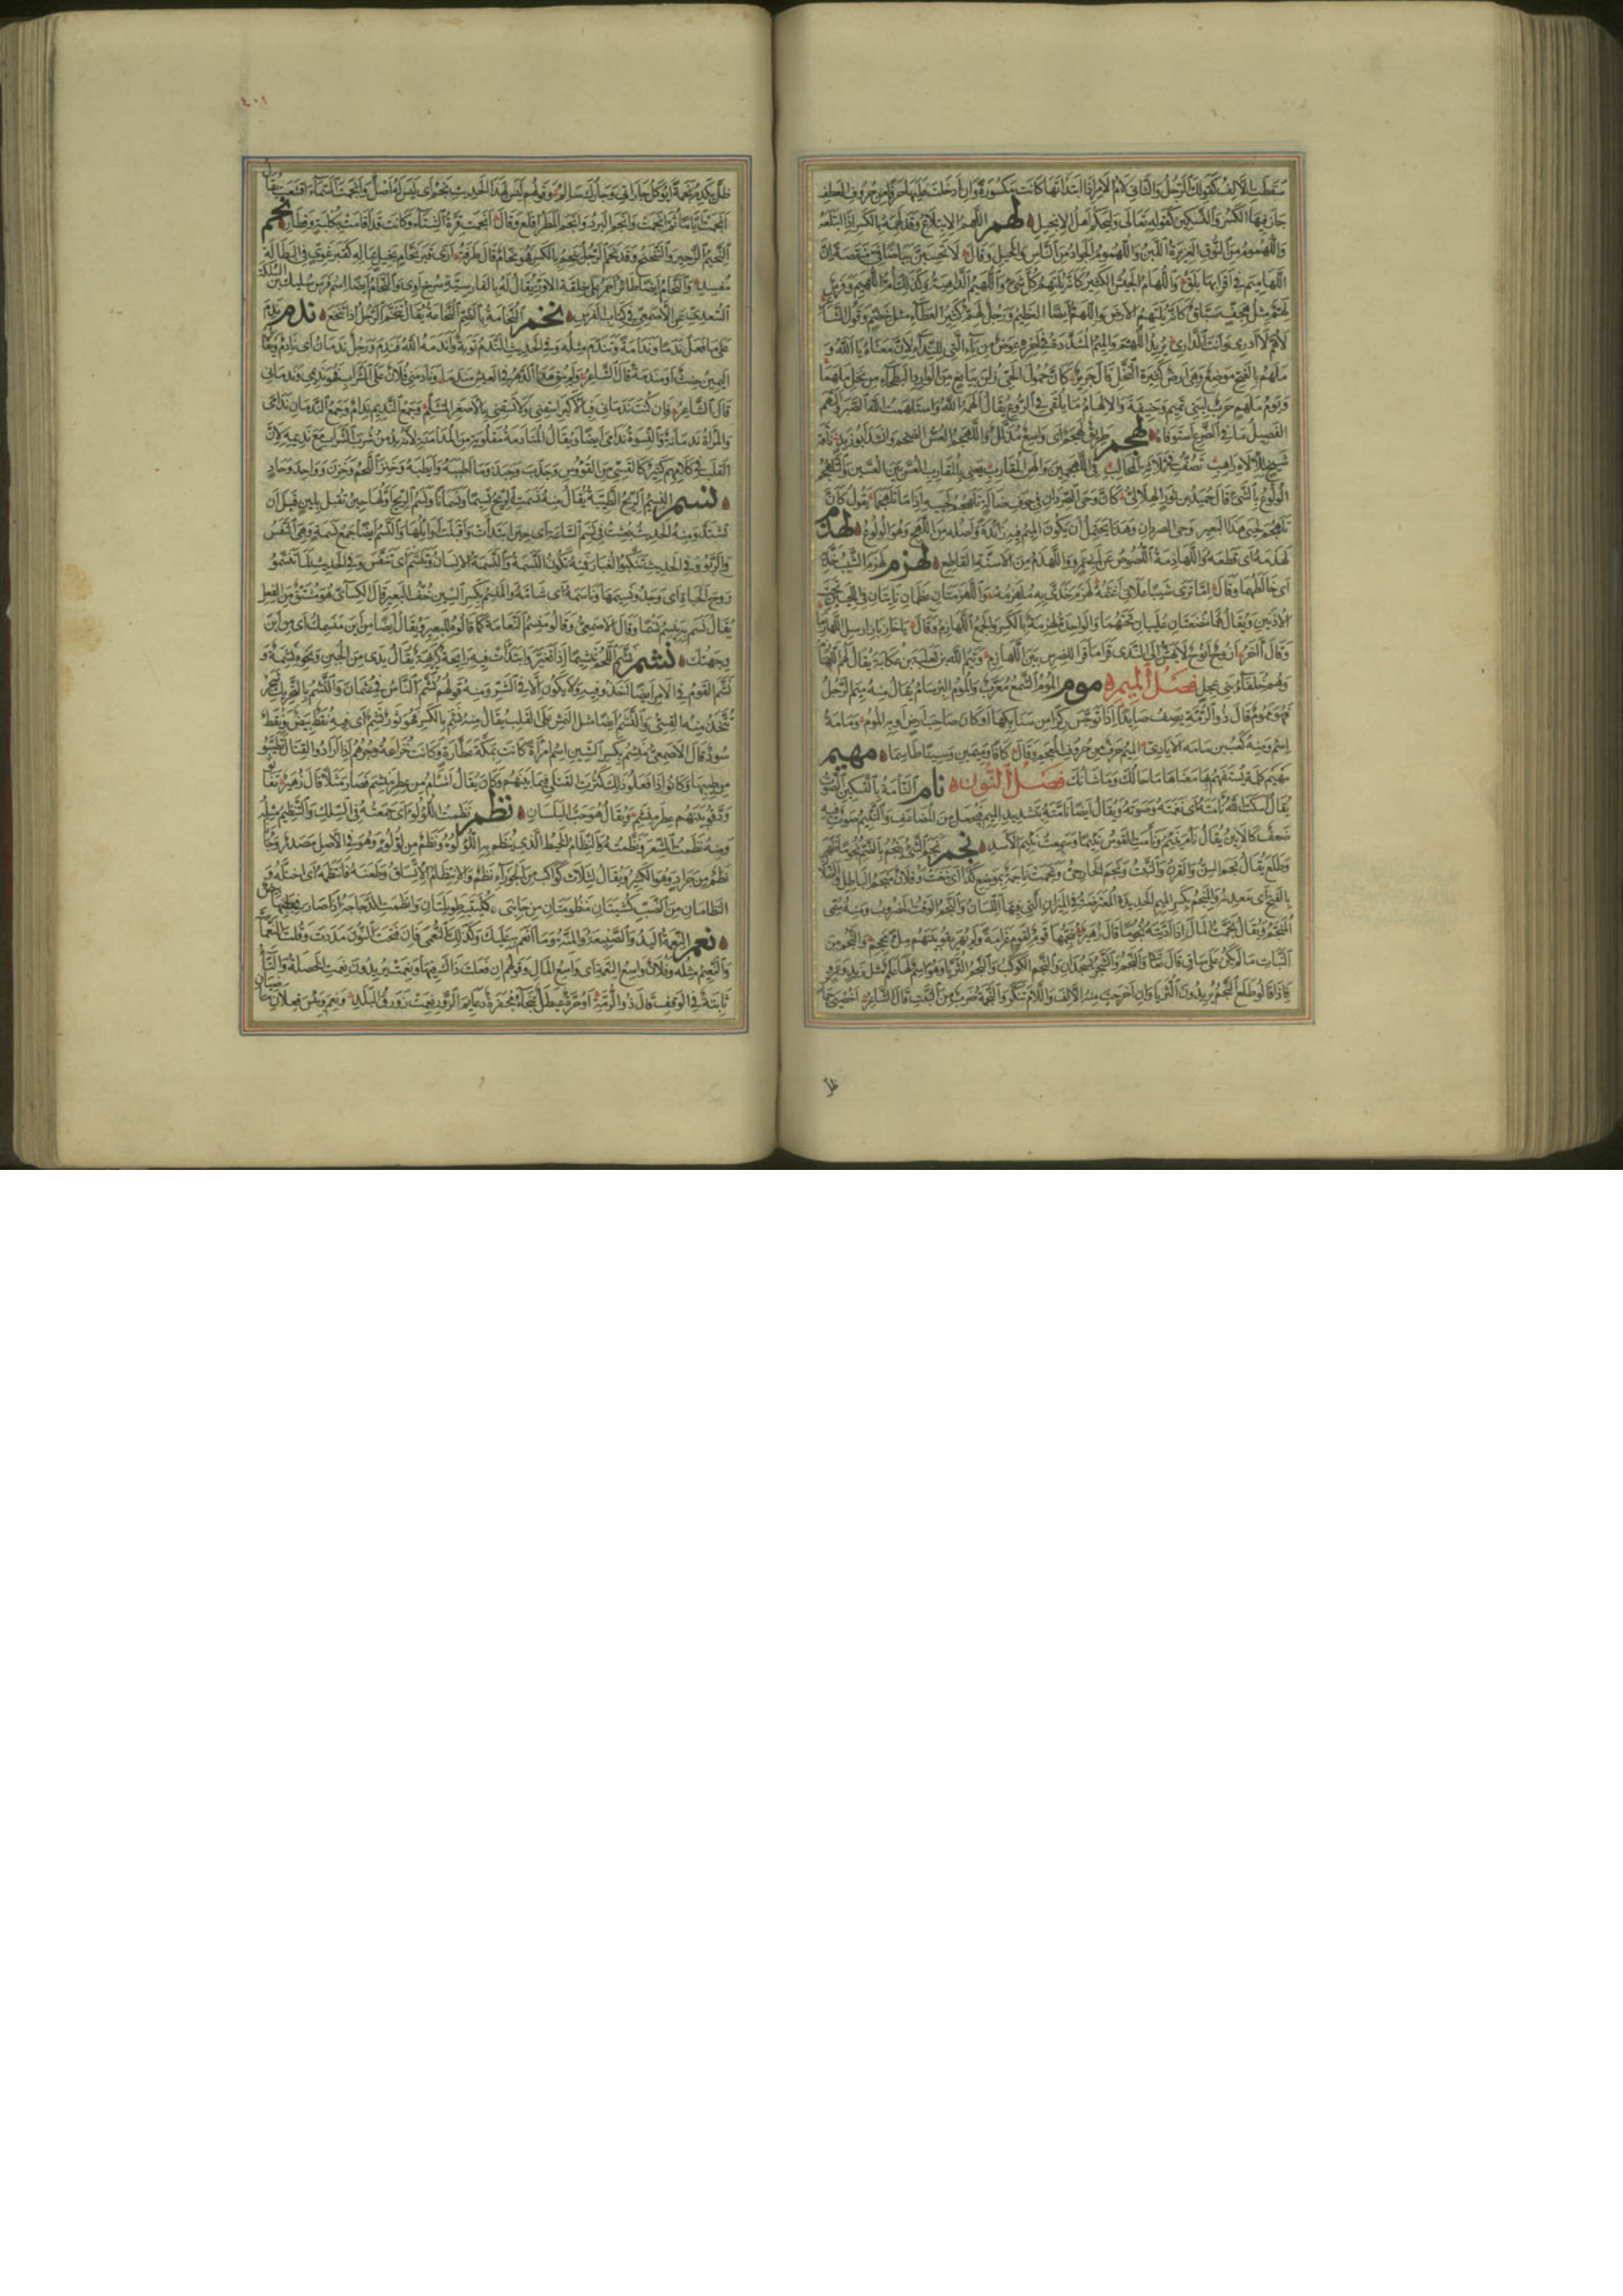 سقطت الالف كقولك للرجل والثاني لام الامر اذا ابتدأتها كانت مكسورة وان ادخلت عليها حرفا من حروف العطف
جاز فيها الكسر والتسكين كقوله تعالى وليحكم اهل الانجيل لهم اللهم الابتلاع وقد لهمه بالكسر اذا ابتلعه
واللهموم من النوق الغزيرة اللبن واللهموم الجواد من الناس والخيل وقال لا تحسبن بياضا في منقصة ان
اللهاميم في اقرابها بلق واللهام الجيش الكثير كانه يلتهم كل شيء واللهيم الداهية وكذلك ام اللهيم وفرس
لهم مثل هجف سباق كانه يلتهم الارض واللهم ايضا العظيم ورجل لهم كثير العطاء مثل خضم وقول الشاعر
لاهم لا ادري وانت الداري يريد اللهم والميم المشددة في اخره عوض من ياء التي للنداء لان معناه يا الله و
ملهم بالفتح موضع وهي ارض كثيرة النخل قال جرير كان حمول الحي زلن بيانع من الوارد البطحاء من نخل ملهما
ويوم ملهم حرب لبني تميم وحنيفة والالهام ما يلقى في الروع يقال الهمه الله واستلهمت الله الصبر والتهم
الفصيل ما في الضرع استوفاه لهجم طريق لهجم اى واسع مذلل واللهجم العس الضخم وانشد ابو زيد ناقة
الولوع بالشيء قال حميد بن ثور الهلالي كان وحى الصردان في جوف ضالة تلهجم لحييه اذا ما تلهجما يقول كان
تلهجم لحيي هذا البعير وحى الصردان وهذا يحتمل ان يكون الميم فيه زائدة واصله من اللهج وهو الولوع لهذم
لهذمه اى قطعه واللهاذمة اللصوص عن ابي عمرو واللهذم من الاسنة القاطع لهزم لهزم الشيب خديه
اى خالطهما وقال اما ترى شيبا علاني اغثمه لهزم خدي به ملهزمه واللهزمتان عظمان ناتئان في اللحيين تحت
الاذنين ويقال هما مضغتان عليان تحتهما والواحدة لهزمة بالكسر والجمع اللهازم وقال يا خاز باز ارسل اللهازما
وهم حلفاء بني عجل فصل الميم موم الموم الشمع معرب والموم البرسام يقال منه ميم الرجل
فهو مموم قال ذو الرمة يصف صائدا اذا توجس ركزا من سنابكها او كان صاحب ارض او به الموم ومامة
اسم ومنه كعب بن مامة الايادي الميم حرف من حروف المعجم وقال كافا وميمين وسينا طاسما مهيم
مهيم كلمة يستفهم بها معناها ما حالك وما شانك فصل النون نام النامة بالتسكين الصوت
يقال اسكت الله نامته اى نغمته وصوته ويقال ايضا نامته بتشديد الميم فيجعل من المضاعف والنئيم صوت فيه
ضعف كالانين يقال نام ينئم ونامت القوس نئيما وسمعت نئيم الاسد نجم نجم الشيء ينجم بالضم نجوما ظهر
وطلع يقال نجم السن والقرن والنبت ونجم الخارجي ونجمت ناجمة بموضع كذا اى نبغت وفلان منجم الباطل والضلالة
بالفتح اى معدنه والمنجم بكسر الميم الحديدة المعترضة في الميزان التي فيها اللسان والنجم الوقت المضروب ومنه سمي
المنجم ويقال نجمت المال اذا اديته نجوما قال زهير ينجمها قوم لقوم غرامة ولم يهريقوا بينهم ملء محجم والنجم من
النبات ما لم يكن على ساق قال تعالى والنجم والشجر يسجدان والنجم الكوكب والنجم الثريا وهو اسم لها علم مثل زيد وعمرو
فاذا قالوا طلع النجم يريدون الثريا وان اخرجت منه الالف واللام تنكر والنجمة ضرب من النبت قال الشاعر اخصيي حمار
ظل
٤٠١
ظل يكدم نجمة ايوكل جاراتي وجارك سالم وقولهم ليس لهذا الحديث نجم اى ليس له اصل وانجمت السماء اقشعت يقال
انجمت اياما ثم اثجمت وانجم البرد وانجم المطر اقلع وقال انجمت قرة الشتاء وكانت قد اقامت بكلبة وقطار نحم
النحيم الزحير والتنحنح وقد نحم الرجل ينحم بالكسر فهو نحام قال طرفة ارى قبر نحام بخيل بماله كقبر غوي في البطالة
مفسد والنحام ايضا طائر احمر على خلقة الاوز يقال له بالفارسية سرخ اوى والنحام ايضا اسم فرس سليك بن السلكة
السعدي عن الاصمعي في كتاب الفرس نخم النخامة بالضم النخاعة يقال تنخم الرجل اذا تنخع ندم ندم
على ما فعل ندما وندامة وتندم مثله وفي الحديث الندم توبة واندمه الله فندم ورجل ندمان اى نادم ويقال
اليمين حنث او مندمة قال الشاعر ولم يبق هذا الدهر في العيش مندما ونادمني فلان على الشراب فهو نديمي وندماني
قال الشاعر فان كنت ندماني فبالاكبر اسقني ولا تسقني بالاصغر المتثلم وجمع النديم ندام وجمع الندمان ندامى
والمراة ندمانة والنسوة ندامى ايضا ويقال المنادمة مقلوبة من المدامنة لانه يدمن شرب الشراب مع نديمه لان
القلب في كلامهم كثير كالقسي من القووس وجذب وجبذ وما اطيبه وايطبه وخنز اللحم وخزن وواحد وحاد
نسم النسيم الريح الطيبة يقال منه نسمت الريح نسيما ونسمانا ونسم الريح اولها حين تقبل بلين قبل ان
تشتد ومنه الحديث بعثت في نسم الساعة اى حين ابتدات واقبلت اوائلها والنسم ايضا جمع نسمة وهي النفس
والربو وفي الحديث تنكبوا الغبار فمنه تكون النسمة والنسمة الانسان وتنسم اى تنفس وفي الحديث لما تنسموا
روح الحياة اى وجدوا نسيمها وناسمه اى شامه والمنسم بكسر السين خف البعير قال الكسائي هو مشتق من الفعل
يقال نسم به ينسم نسما وقال الاصمعي وقالوا منسم النعامة كما قالوا للبعير ويقال ايضا من اين منسمك اى من اين
وجهتك نشم نشم اللحم تنشيما اذا تغير وابتدات فيه رائحة كريهة يقال يدي من الجبن ونحوه نشمة و
نشم القوم في الامر ايضا اخذوا فيه ولا يكون الا في الشر ومنه قولهم نشم الناس في عثمان والنشم بالتحريك شجر
تتخذ منه القسي والنشم ايضا مثل النمش على القلب يقال منه نشم بالكسر فهو ثور نشم اى فيه نقط بيض ونقط
سود قال الاصمعي منشم بكسر الشين اسم امراة كانت بمكة عطارة وكانت خزاعة وجرهم اذا ارادوا القتال تطيبوا
من طيبها وكانوا اذا فعلوا ذلك كثرت القتلى فيما بينهم وكان يقال اشام من عطر منشم فصار مثلا قال زهير تفانوا
ودقوا بينهم عطر منشم ويقال هو حب البلسان نظم نظمت اللؤلؤ اى جمعته في السلك والتنظيم مثله
ومنه نظمت الشعر ونظمته والنظام الخيط الذي ينظم به اللؤلؤ ونظم من لؤلؤ وهو في الاصل مصدر وجاءنا
نظم من جراد وهو الكثير ويقال لثلاث كواكب من الجوزاء نظم والانتظام الاتساق وطعنه فانتظمه اى اختله و
النظامان من الضب كشيتان منظومتان من جانبي كليتيه طويلتان وانظمت الدجاجة اذا صار في بطنها بيض
نعم النعمة اليد والصنيعة والمنة وما انعم به عليك وكذلك النعمى فان فتحت النون مددت وقلت النعماء
والنعيم مثله وفلان واسع النعمة اى واسع المال وقولهم ان فعلت ذاك فبها ونعمت يريدون نعمت الخصلة والتاء
ثابتة في الوقف قال ذو الرمة او حرة عيطل ثبجاء مجفرة دعائم الزور نعمت زورق البلد ونعم وبئس فعلان ماضيان